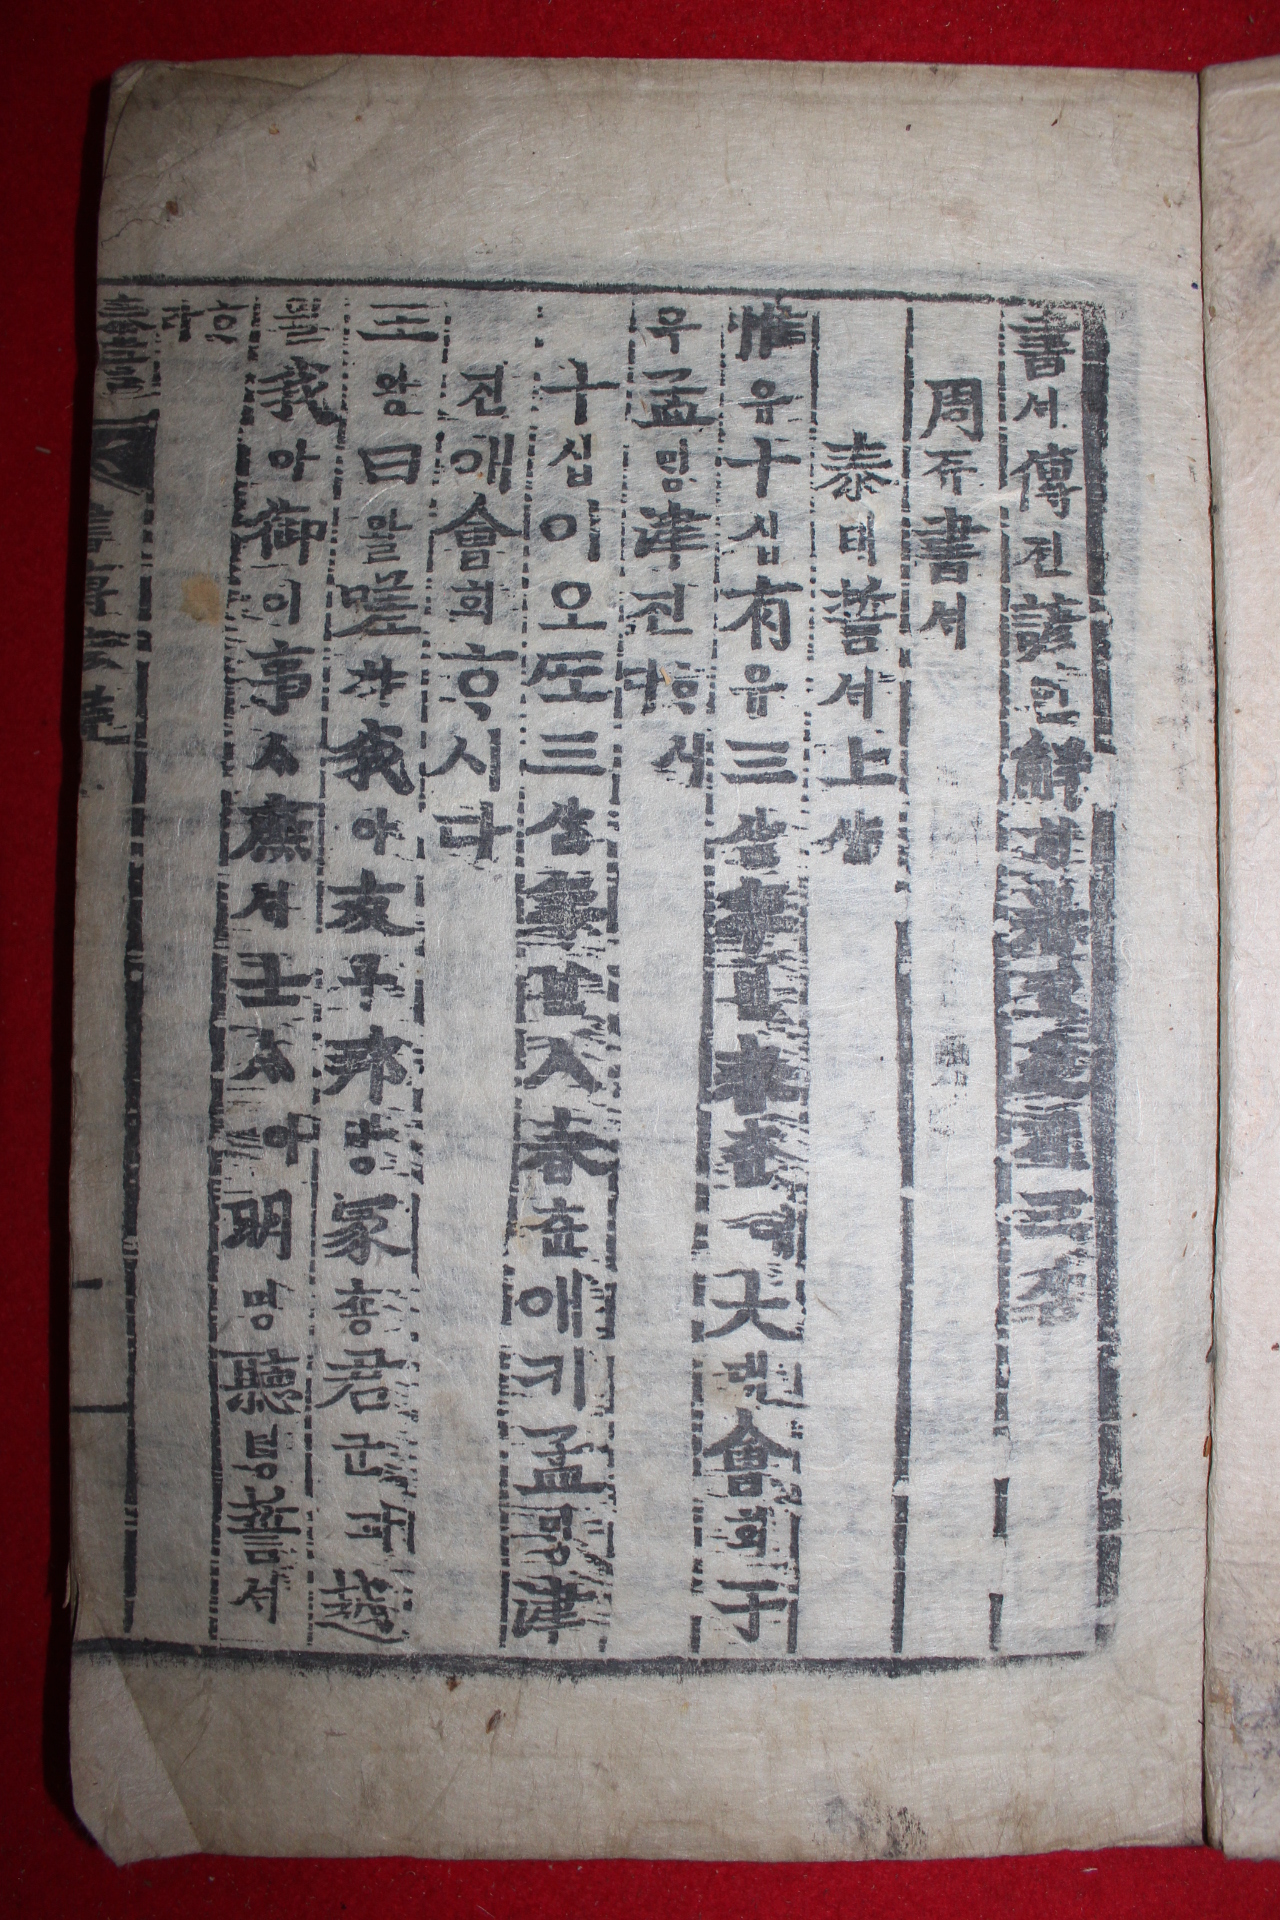 書셔傳젼諺언解
周쥬書셔
泰태誓셔上샹
惟유十십有유三삼年년春츈에大대會회于
우孟밍津진ᄒᆞ시다
十십이오ᄯᅩ三삼年년人春츈애키孟밍津
진애會회ᄒᆞ시다
王왕曰왈嗟차我아友우邦방冢춍君군과越
월我아御어事ᄉᆞ庶셔士ᄉᆞ아明명聽텽誓셔
ᄒᆞ라